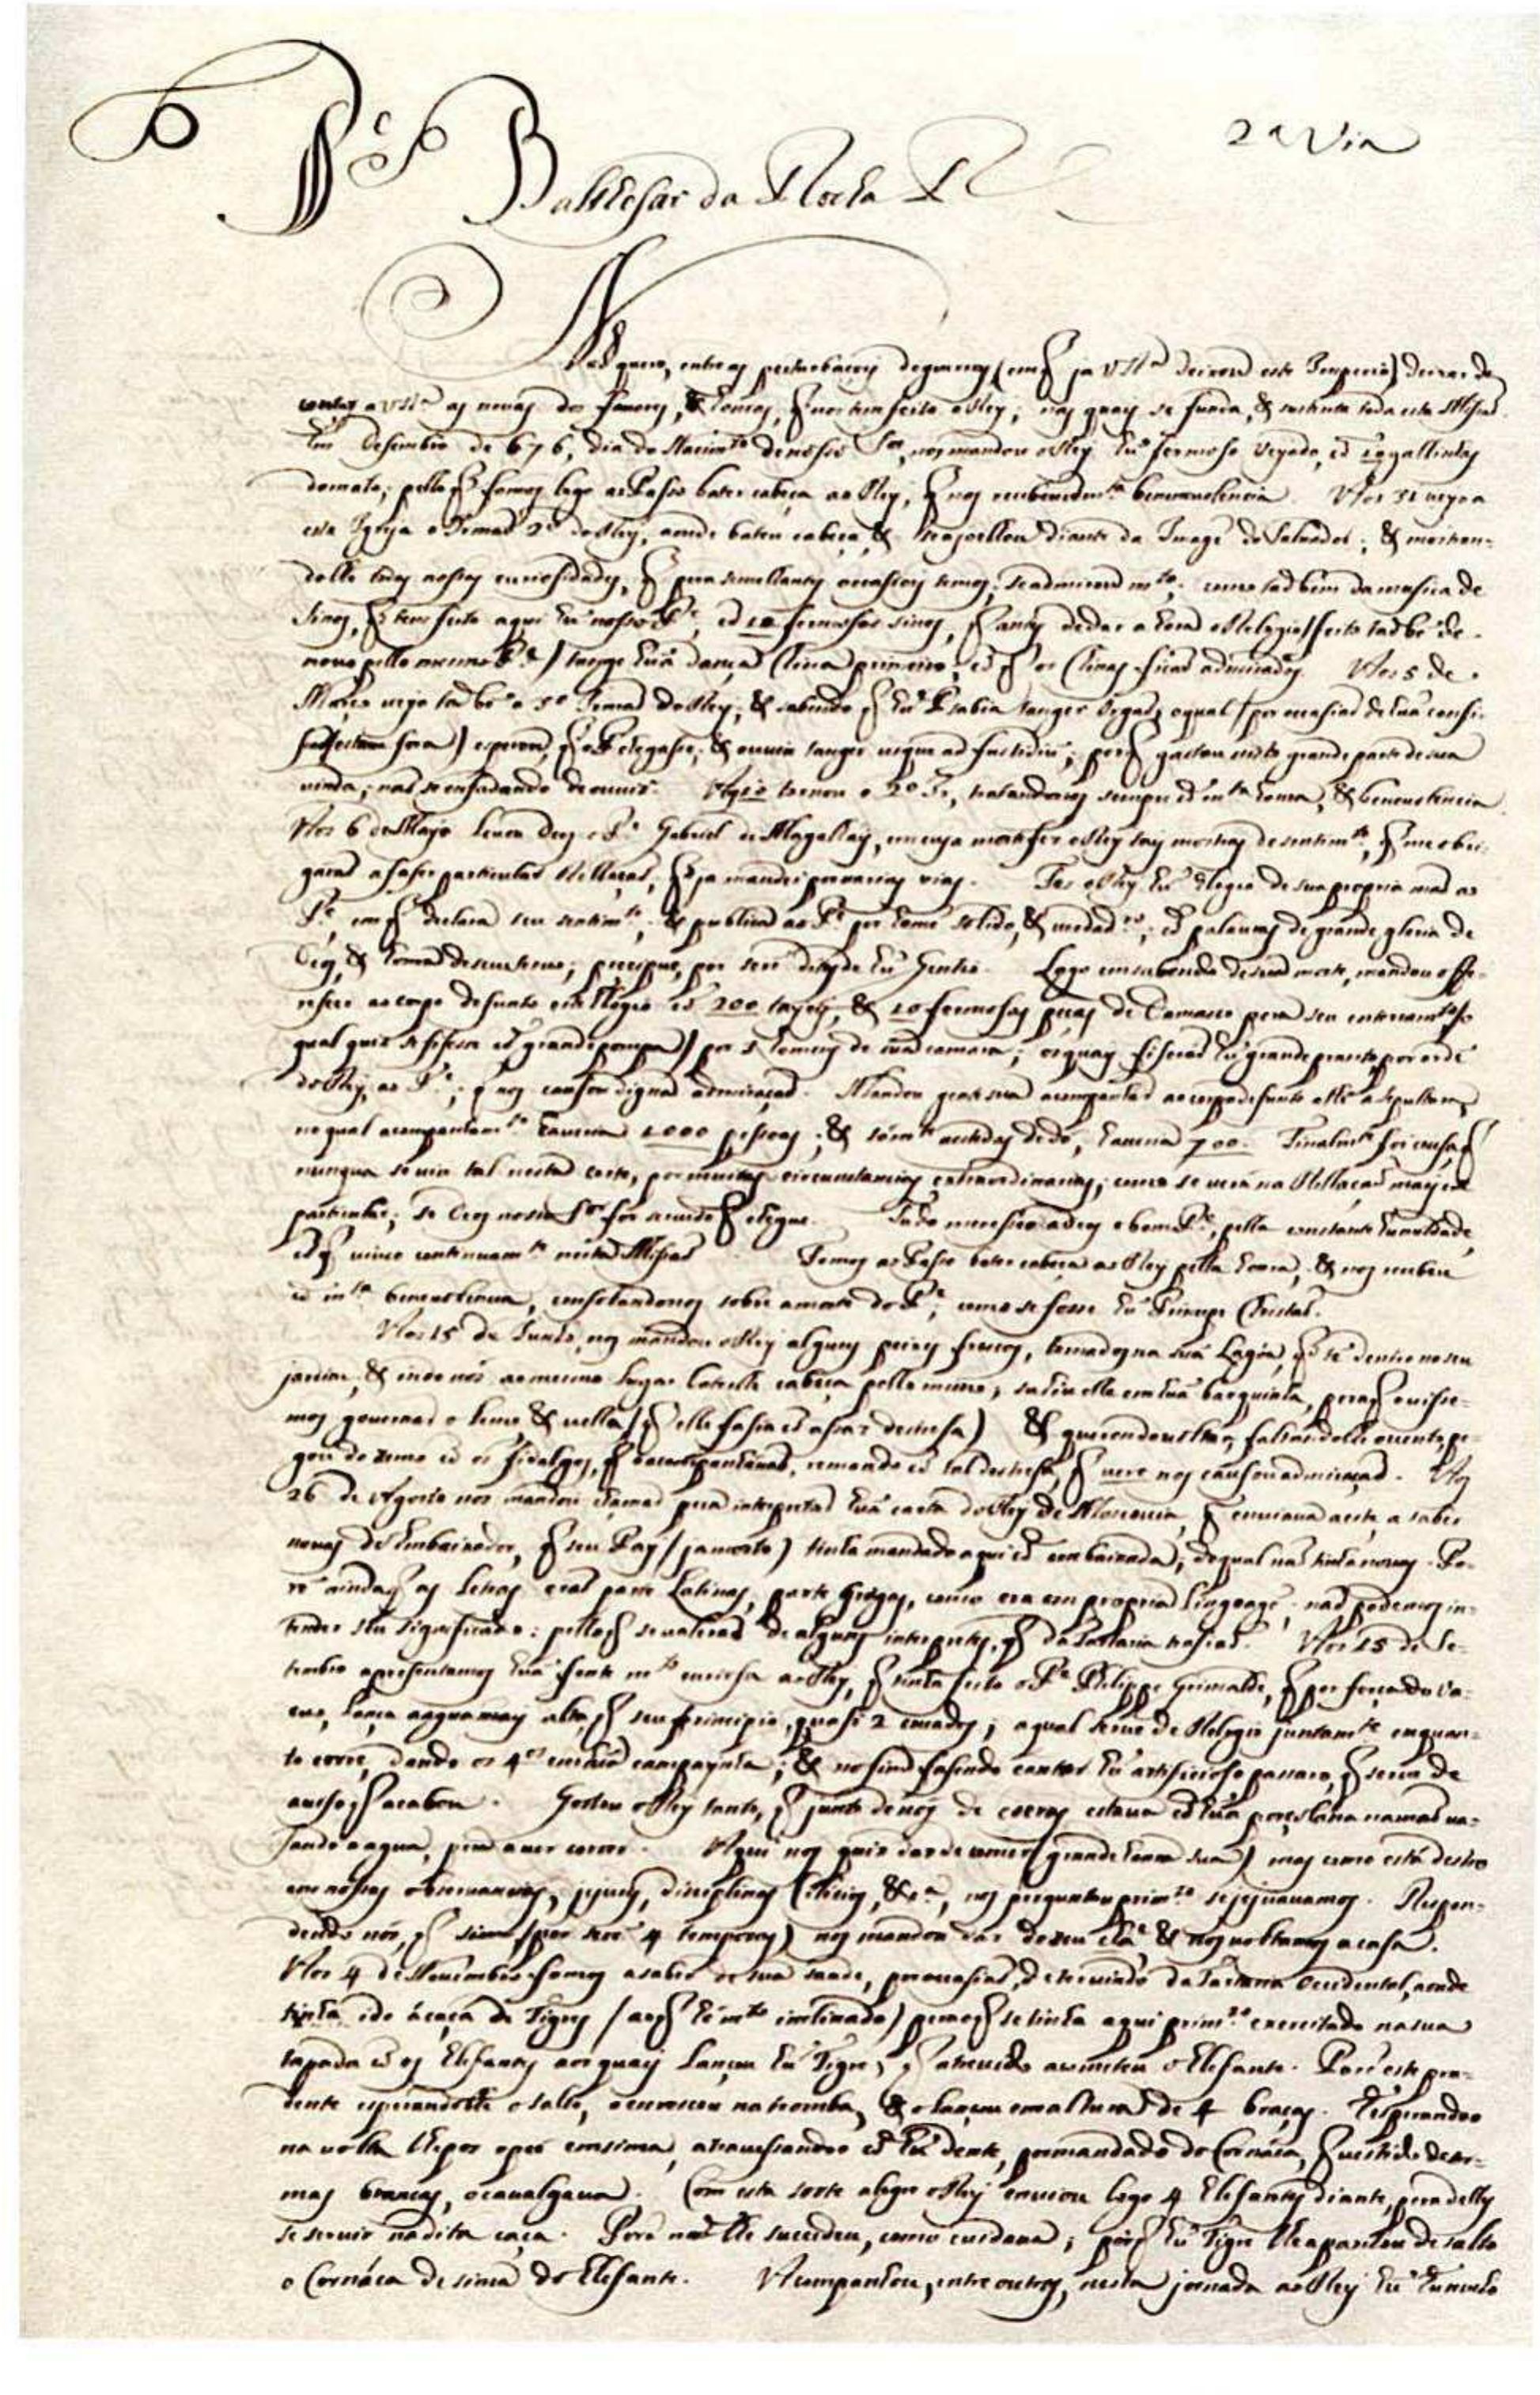 2ª Via
Pe Balthesar da Rocha
Naõ quero, entre as perturbações de guerras (em q̃ ja VSRª deixou este Imperio) deixar de
contar a VSRª as novas dos favores, & honras, q̃ nos tem feito elRey; nas quais se funda, & sustenta toda esta Missaõ.
Em Desembro de 676, dia do Nacimto de nosso Sor, nos mandou elRey hũ fermoso Veyado, cõ gallinhas
do mato; pello q̃ fomos logo ao Passo bater cabeça ao Rey, q̃ nos recebeu cõ mta benevolencia. Aos 31 veyo a
esta Igreja o Irmaõ 2º do Rey, aonde bateu cabeça, & se ajoelhou diante da Image do Salvador; & mostran-
dolhe todas nossas curiosidades, q̃ pera semelhantes occasioẽs temos; se admirou mto; como taõ bem da musica de
sinos, q̃ tem feito aqui hũ nosso Pe, cõ 10 fermosos sinos, q̃ antes de dar a hora o Relogio (feito taõ bẽ de
novo pello mesmo Pe) tange huã dança China primeiro; cõ q̃ os Chinas ficaõ admirados. Aos 5 de
Março veyo taõ bẽ o 5º Irmaõ do Rey; & sabendo q̃ hũ P sabia tanger Orgaõ, o qual (por occasiaõ de huã confi-
fora) esperou, q̃ o P chegasse; & ouvio tanger usque ad fastidiũ; porq̃ gastou nisto grande parte de sua
vinda; naõ se enfadando de ouvir. tornou o 2º Ir, tratandonos sempre cõ mta honra, & benevolencia.
Aos 6 de Mayo levou Deos o Pe Gabriel de Magalhaẽs, em cuja morte fez elRey tais mostras de sentimto, q̃ me obri-
garaõ a faser particular Rellaçaõ, q̃ ja mandei por varias vias. Fez elRey hũ Elogio de sua propria maõ ao
Pe, em q̃ declara seu sentimto, & publica ao Pe por home solido, & verdadro; cõ palavras de grande gloria de
Deos, & honra de seu servo; por serẽ ditas de hũ Gentio. Logo em sabendo de sua morte, mandou offe-
recer ao corpo defunto este Elogio cõ 200 tayeis, & 10 fermosas peças de Damasco pera seu enterramto (o
qual quis se fisesse cõ grande pompa) por 3 homens de sua camara; os quais fiseraõ hũ grande pranto, por ordẽ
do Rey, ao Pe; q̃ nos causou digna admiraçaõ. Mandou gente sua acompanhar ao corpo defunto athe a sepultura;
no qual acompanhamto haveria 1000 pessoas; & sómte vestidas de dó, haveria 700. Finalmte foi cousa q̃
nunqua se vio tal nesta corte, por muitas circumstancias extraordinarias; como se verá na Rellaçaõ mais em
particular; se Deos nosso Sor for servido q̃ chegue. Tudo mereceo a Deos o bom Pe, pella constante humildade,
cõ q̃ viveo continuamte nesta Missaõ. Fomos ao Passo bater cabeça ao Rey pella honra, & nos recebeu
cõ mta benevolencia, consolandonos sobre a morte do Pe; como se fosse hũ Principe Christaõ.
Aos 15 de Junho, nos mandou elRey alguns peixes frescos, tomados na sua Lagoa, q̃ tẽ dentro no seu
jardim; & indo nós ao mesmo lugar baterlhe cabeça pello mimo, sahiu elle em huã barquinha, pera q̃ o visse-
mos governar o leme, & vella (q̃ elle fasia cõ assaz destresa) & querendo voltar, faltandolhe o vento, pe-
gou do remo cõ os fidalgos, q̃ o acompanhavaõ, remando cõ tal destresa, q̃ vere nos causou admiraçaõ. Aos
26 de Agosto nos mandou chamar pera interpretar huã carta do Rey de Moscovia, q̃ enviava aeste, a saber
novas do Embaixador, q̃ seu Pay (ja morto) tinha mandado aqui cõ embaixada; do qual naõ tinha novas. Po-
rẽ ainda q̃ as letras eraõ parte Latinas, parte Gregas, como era em propria lingoagẽ, naõ podemos in-
tender seu significado: pello q̃ se valeraõ de alguns interpretes, q̃ da Tartaria trasiaõ. Aos 15 de Se-
tembro apresentamos huã fonte mto curiosa ao Rey, q̃ tinha feito o Pe Philippe Grimalde, q̃ por força do va-
cuo, lança a agua mais alta, q̃ seu principio, quasi 2 covados; a qual serve de Relogio juntamte enquan-
to corre, dando os 4os em huã campaynha; & no fim fasendo cantar hũ artificioso passaro, q̃ serve de
aviso q̃ acabou. Gostou elRey tanto, q̃ junto de nos de cocras estava cõ huã porçolana na maõ va-
sando a agua, pera a ver correr. Aqui nos quis dar de comer (grande honra sua) mas como está destro
em nossas observancias, jejuns, disciplinas cilicios, &cª, nos perguntou primro se jejuavamos. Respon-
dendo nós, q̃ sim (por serẽ 4 temporas) nos mandou dar do seu chá & nos voltamos a casa.
Aos 4 de Novembro fomos a saber de sua saude, por occasiaõ de ter vindo da Tartaria Occidental, aonde
tinha ido à caça de Tigres (ao q̃ he mto inclinado) pera o q̃ se tinha aqui primro exercitado na sua
tapada cõ os Elefantes aos quais lançou hũ Tigre, q̃ atrevido acometeu o Elefante. Porẽ este pru-
dente esperandolhe o salto, o enroscou na tromba, & o lançou em altura de 4 braças. Esperandoo
na volta lhe pos o pé em sima, atravessandoo cõ hũ dente, por mandado do Cornáca, q̃ vestido de ar-
mas brancas, o cavalgava. Com esta sorte alegre elRey enviou logo 4 Elefantes diante, pera delles
se servir na dita caça. Porẽ naõ lhe succedeu, como cuidava; porq̃ hũ Tigre lhe apanhou de salto
o Cornáca de sima do Elefante. Acompanhou, entre outros, nesta jornada ao Rey hũ Eunucho